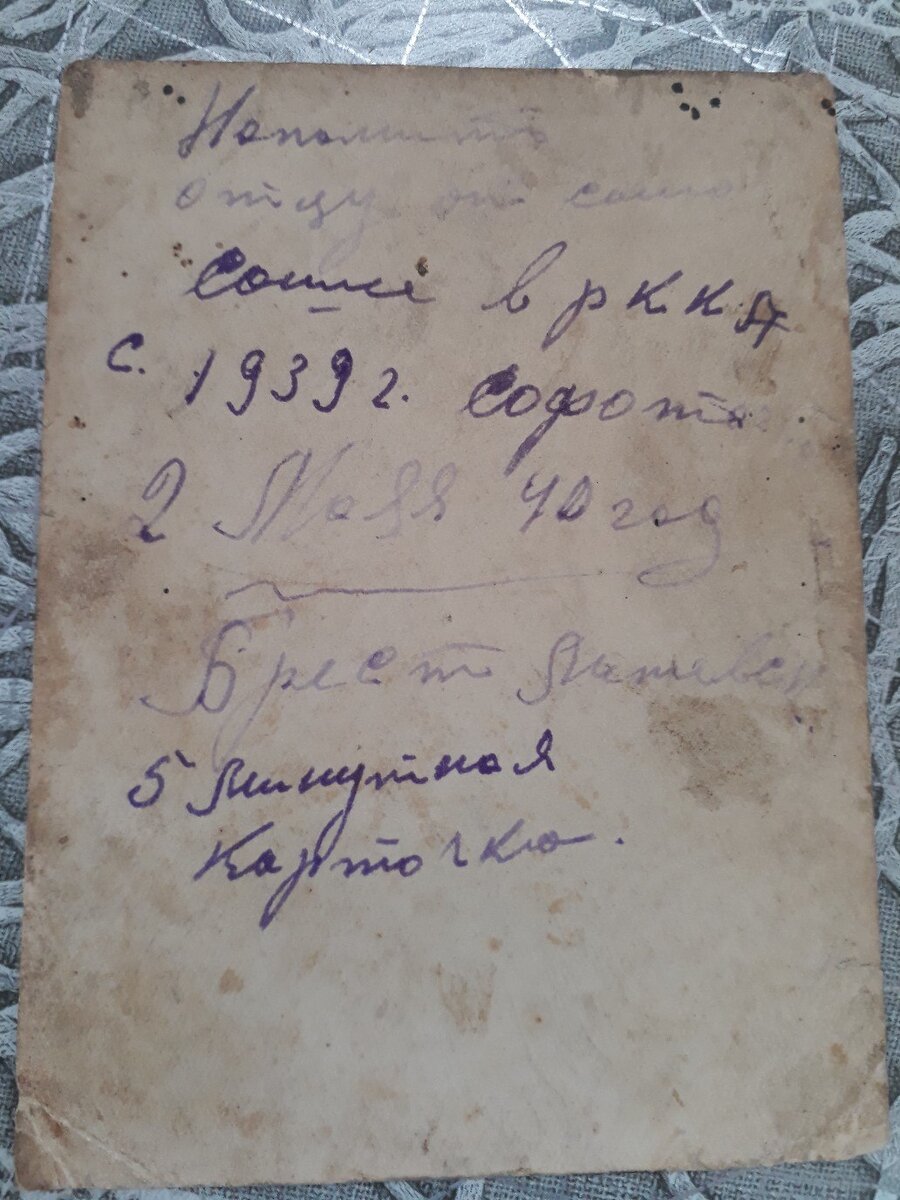 Напомить
отцу от сына
Сомле в ркка
с. 1939 г. Софот
2 Маяя 40 год
Брест Литевск
5 минутная
Карточка.